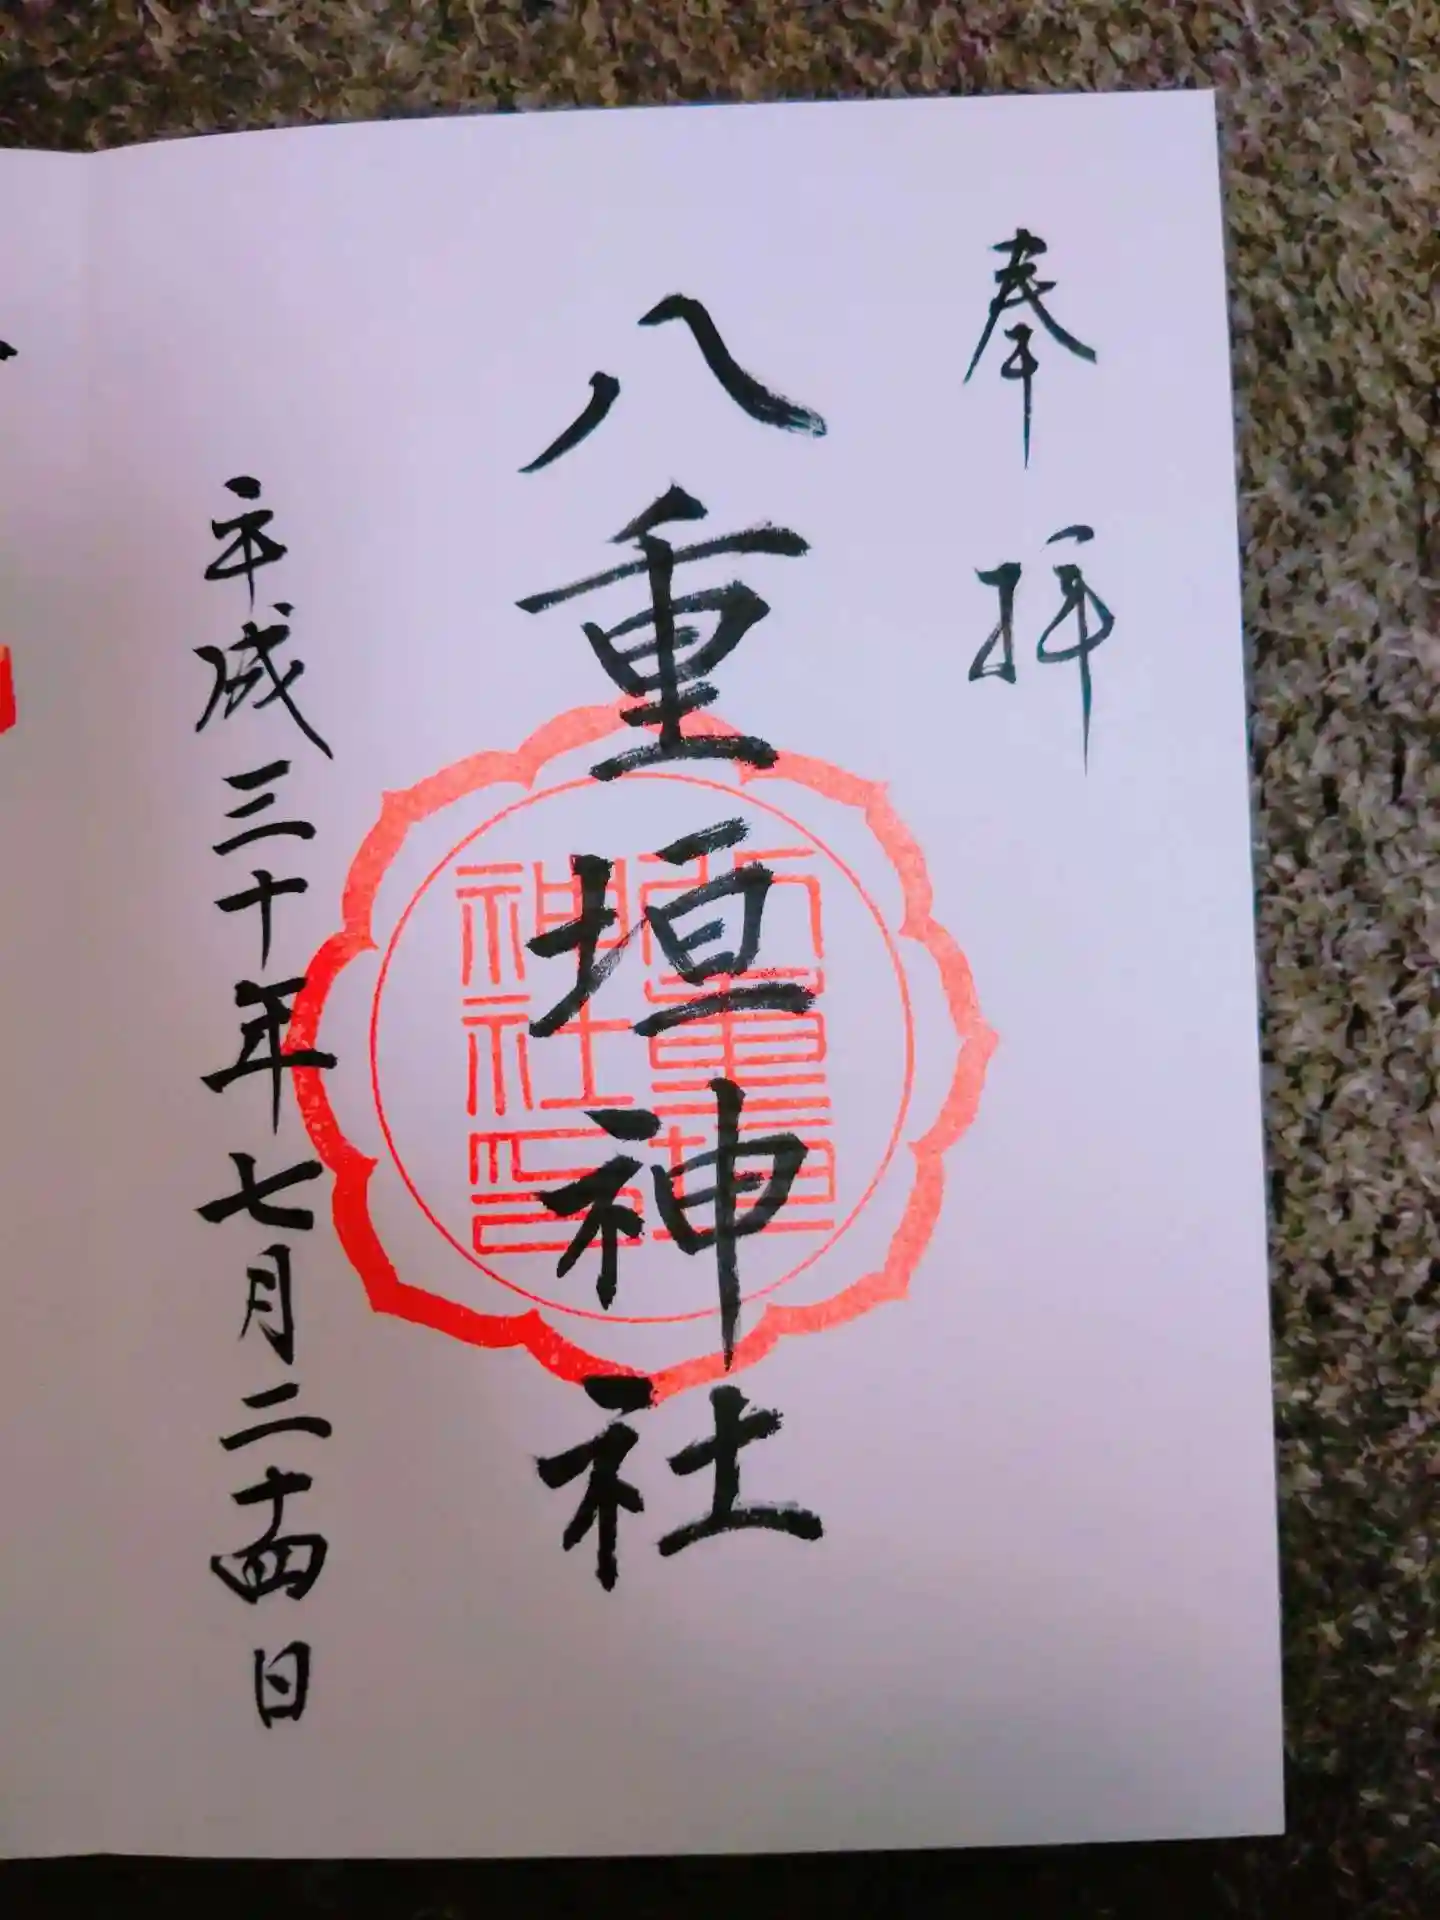 奉拝
八重垣神社
八重垣
神社印
平成三十年七月二十四日